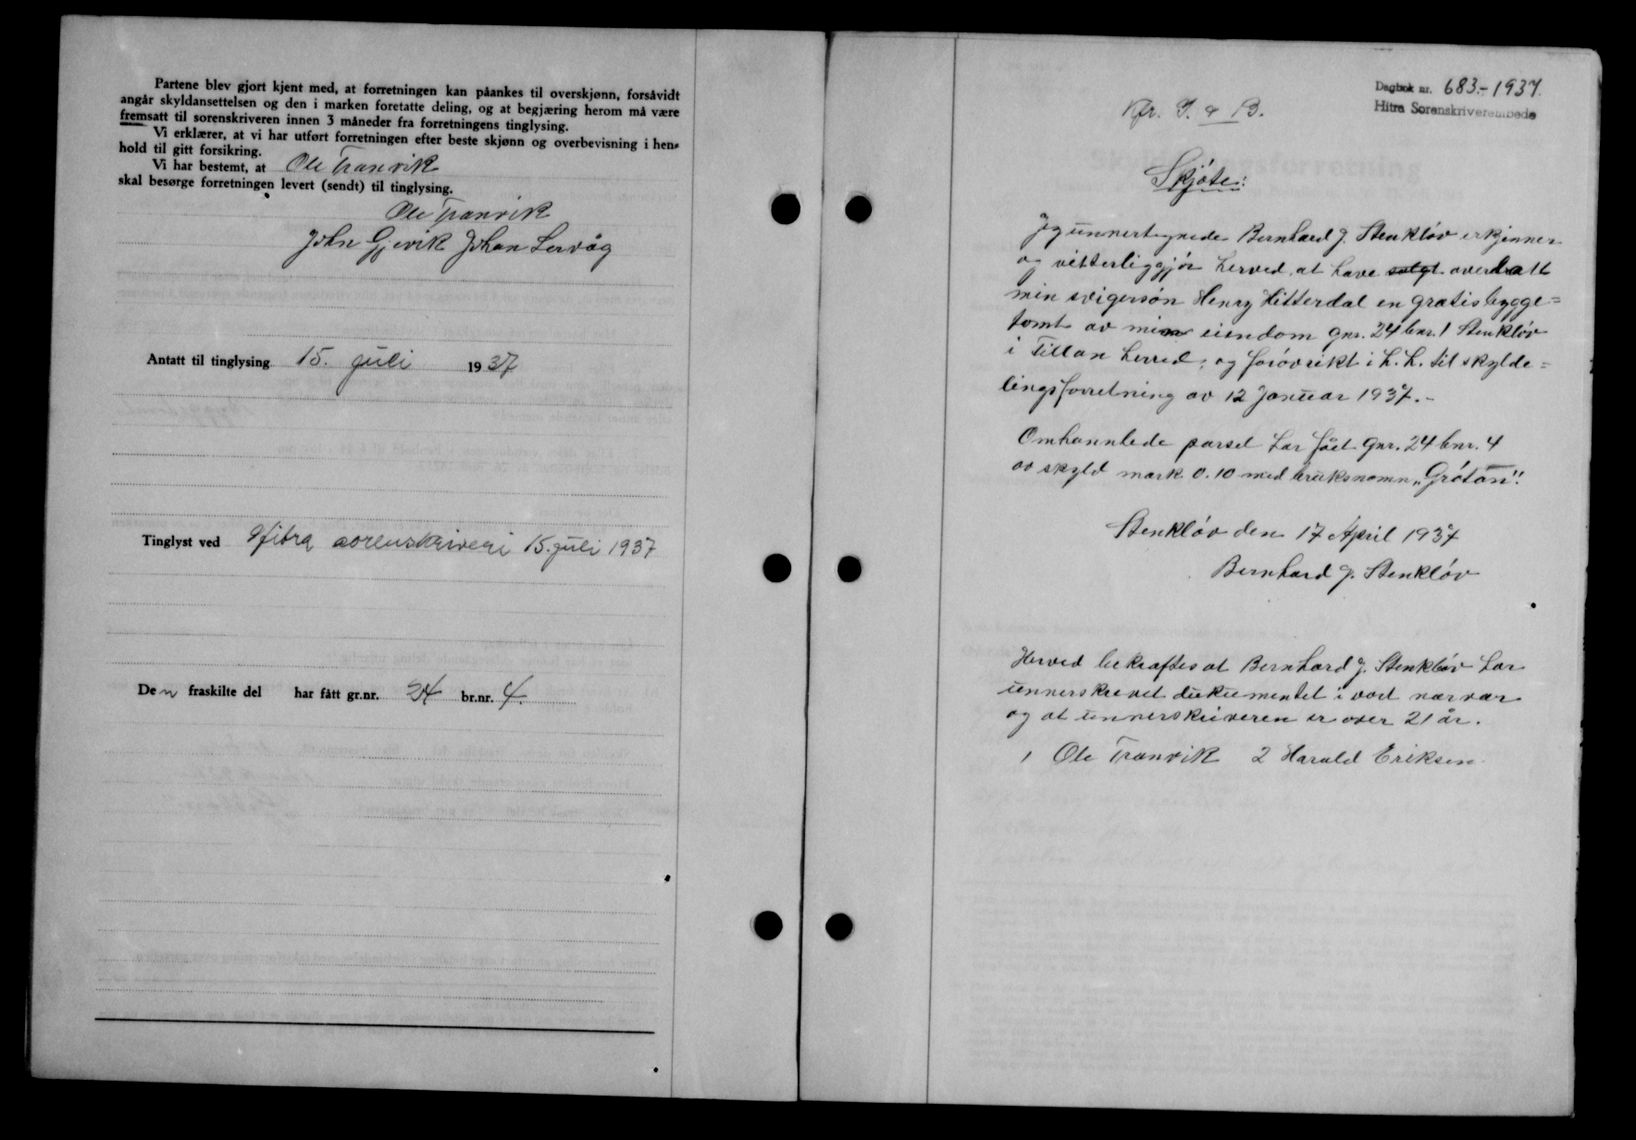 Partene blev gjort kjent med, at forretningen kan påankes til overskjønn, forsåvidt
angår skyldansettelsen og den i marken foretatte deling, og at begjæring herom må være
fremsatt til sorenskriveren innen 3 måneder fra forretningens tinglysing.
Vi erklærer, at vi har utført forretningen efter beste skjønn og overbevisning i hen-
hold til gitt forsikring.
Vi har bestemt, at Ole Tranvik
skal besørge forretningen levert (sendt) til tinglysing.
Ole Tranvik
John Gjevik Johan Lervåg
Antatt til tinglysing 15. juli 1937
Tinglyst ved Hitra sorenskriveri 15. juli 1937
Den fraskilte del har fått gr.nr. 24 br.nr. 4.
Dagbok nr. 683.-1937.
Hitra Sorenskriverembede
Kfr. & B.
Skjøte:
Jeg unnertegnede Bernhard J. Stenkløv erkjenner
og vitterliggjør herved at have solgt overlatt
min svigersøn Henry Hitterdal en gratis bygge=
tomt av min eiendom gnr. 24 bnr. 1 Stenkløv
i Fillan herred, og forøvrikt i h. h. til skylde=
lingsforretning av 12 Januar 1937.-
Omhannlede parsel har fåt gnr. 24 bnr. 4
av skyld mark 0.10 med bruksnamn „Grótan".
Stenkløv den 17 April 1937
Bernhard J. Stenkløv
Herved bekraftes at Bernhard J. Stenkløv har
unnerskrevet dukumentet i vort nærvær
og at unnerskriveren er over 21 år.
1 Ole Tranvik 2 Harald Eriksen